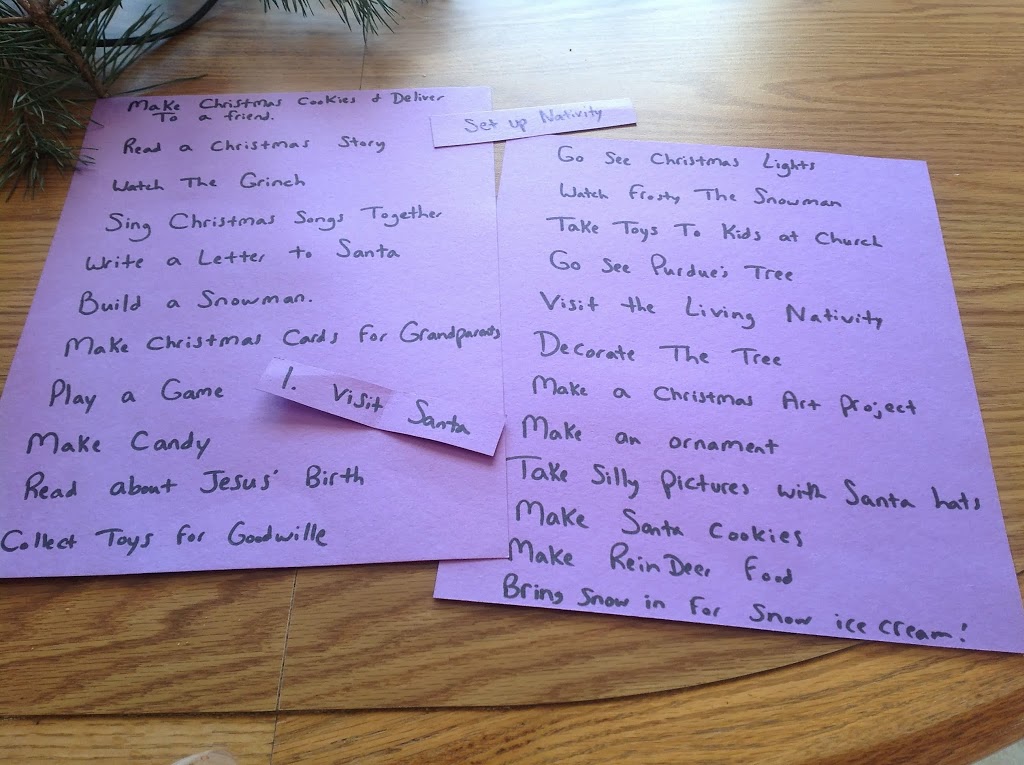 Make Christmas Cookies & Deliver
To a friend.
Read a Christmas Story
Watch The Grinch
Sing Christmas Songs Together
Write a Letter to Santa
Build a Snowman.
Make Christmas Cards for Grandparents
Play a Game
Make Candy
Read about Jesus' Birth
Collect Toys for Goodwille
1. Visit Santa
Set up Nativity
Go See Christmas Lights
Watch Frosty The Snowman
Take Toys To Kids at Church
Go See Purdue's Tree
Visit the Living Nativity
Decorate The Tree
Make a Christmas Art Project
Make an ornament
Take Silly Pictures with Santa hats
Make Santa Cookies
Make ReinDeer Food
Bring Snow in For Snow ice cream!